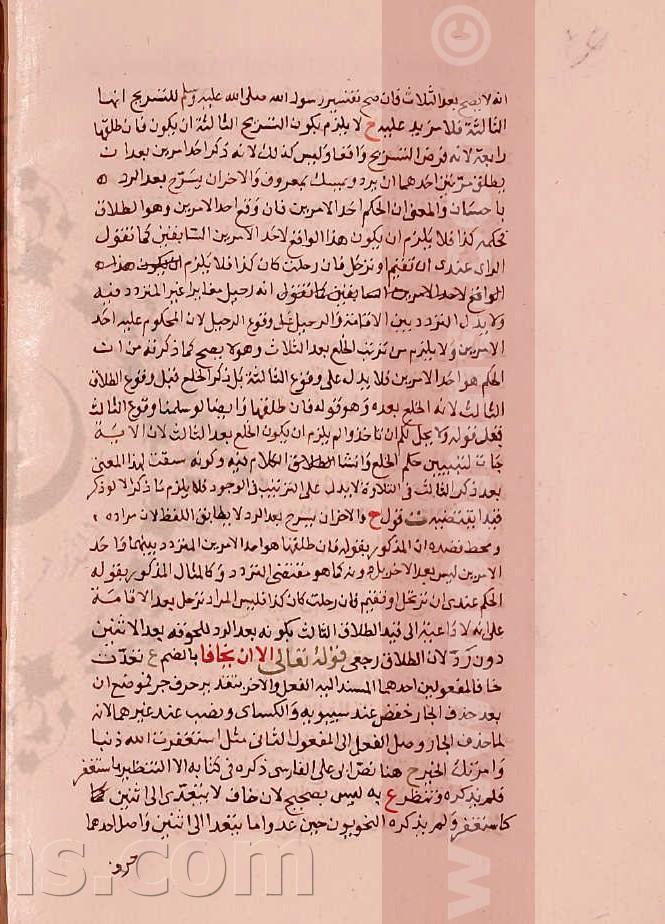 انه لا يصح بعد الثلاث فان صح تفسير رسول الله صلى الله عليه وسلم للتسريح انها
الثالثة فلا مزيد عليه ح لا يلزم بكون التسريح الثالثة ان يكون فان طلقها
رابعة لانه فرض التسريح واقعا وليس كذلك لانه ذكر احد امرين بعد ان
يطلق مرتين احدهما ان يرد ويمسك بمعروف والاخر ان يسرح بعد الرد
باحسان والمعنى ان الحكم احد الامرين فان وقع احد الامرين وهو الطلاق
فحكمه كذا فلا يلزم ان يكون هذا الواقع لاحد الامرين السابقين كما تقول
الراى عندى ان تقيم او ترحل فان رحلت كان كذا فلا يلزم ان يكون هذا
الواقع لاحد الامرين السابقين كما تقول انه رحيل مغاير غير المتردد فيه
ولا يدل التردد بين الاقامة والرحيل على وقوع الرحيل لان المحكوم عليه احد
الامرين ولا يلزم من ترتب الخلع بعد الثلاث وهو لا يصح كما ذكرته من ان
الحكم هو احد الامرين فلا يدل على وقوع الثالثة بل ذكر الخلع قبل وقوع الطلاق
الثالث لانه الخلع بعده وهو قوله فان طلقها وايضا لو سلمنا وقوع الثالث
قبل قوله ولا يحل لكم ان تاخذوا لم يلزم ان يكون الخلع بعد الثالث لان الاية
جات لتبيين حكم الخلع وانشا الكلام فيه وكونه سيقت لهذا المعنى
بعد ذكر الثالث فى التلاوة لا يدل على الترتيب فى الوجود فلا يلزم ما ذكر الا لو ذكر
قيدا يقتضيه ت قول ح والاخر ان يسرح بعد الرد لا يطابق اللفظ لان مراده
ومحط قصده ان المذكور بقوله فان طلقها هو احد الامرين المتردد بينهما واحد
الامرين ليس بعد الاخر بل هو كما هو مقتضى التردد وكالمثال المذكور بقوله
الحكم عندى ان ترتحل او تقيم فان رحلت كان كذا فليس المراد ترحل بعد الاقامة
على انه لا داعية الى قيد الطلاق الثالث بكونه بعد الرد للحوقه بعد الاثنين
دون رد لان الطلاق رجعى قوله تعالى الا ان يخافا بالضم ع تعدت
خافا لمفعولين احدهما المسند اليه الفعل والاخر بتقدير حرف جر فموضع ان
بعد حذف الجار خفض عند سيبويه والكساى ونصب عند غيرهما لانه
لما حذف الجار وصل الفعل الى المفعول الثانى مثل استغفرت الله ذنبا
وامرتك الخير ح هنا نص ابو على الفارسى ذكره فى كتابه الا التنظير باستغفر
فلم يذكره وتنظير ع به ليس بصحيح لان خاف لا يتعدى الى اثنين
كاستغفر ولم يذكره النحويون حين عدوا ما يتعدا الى اثنين واصل احدهما